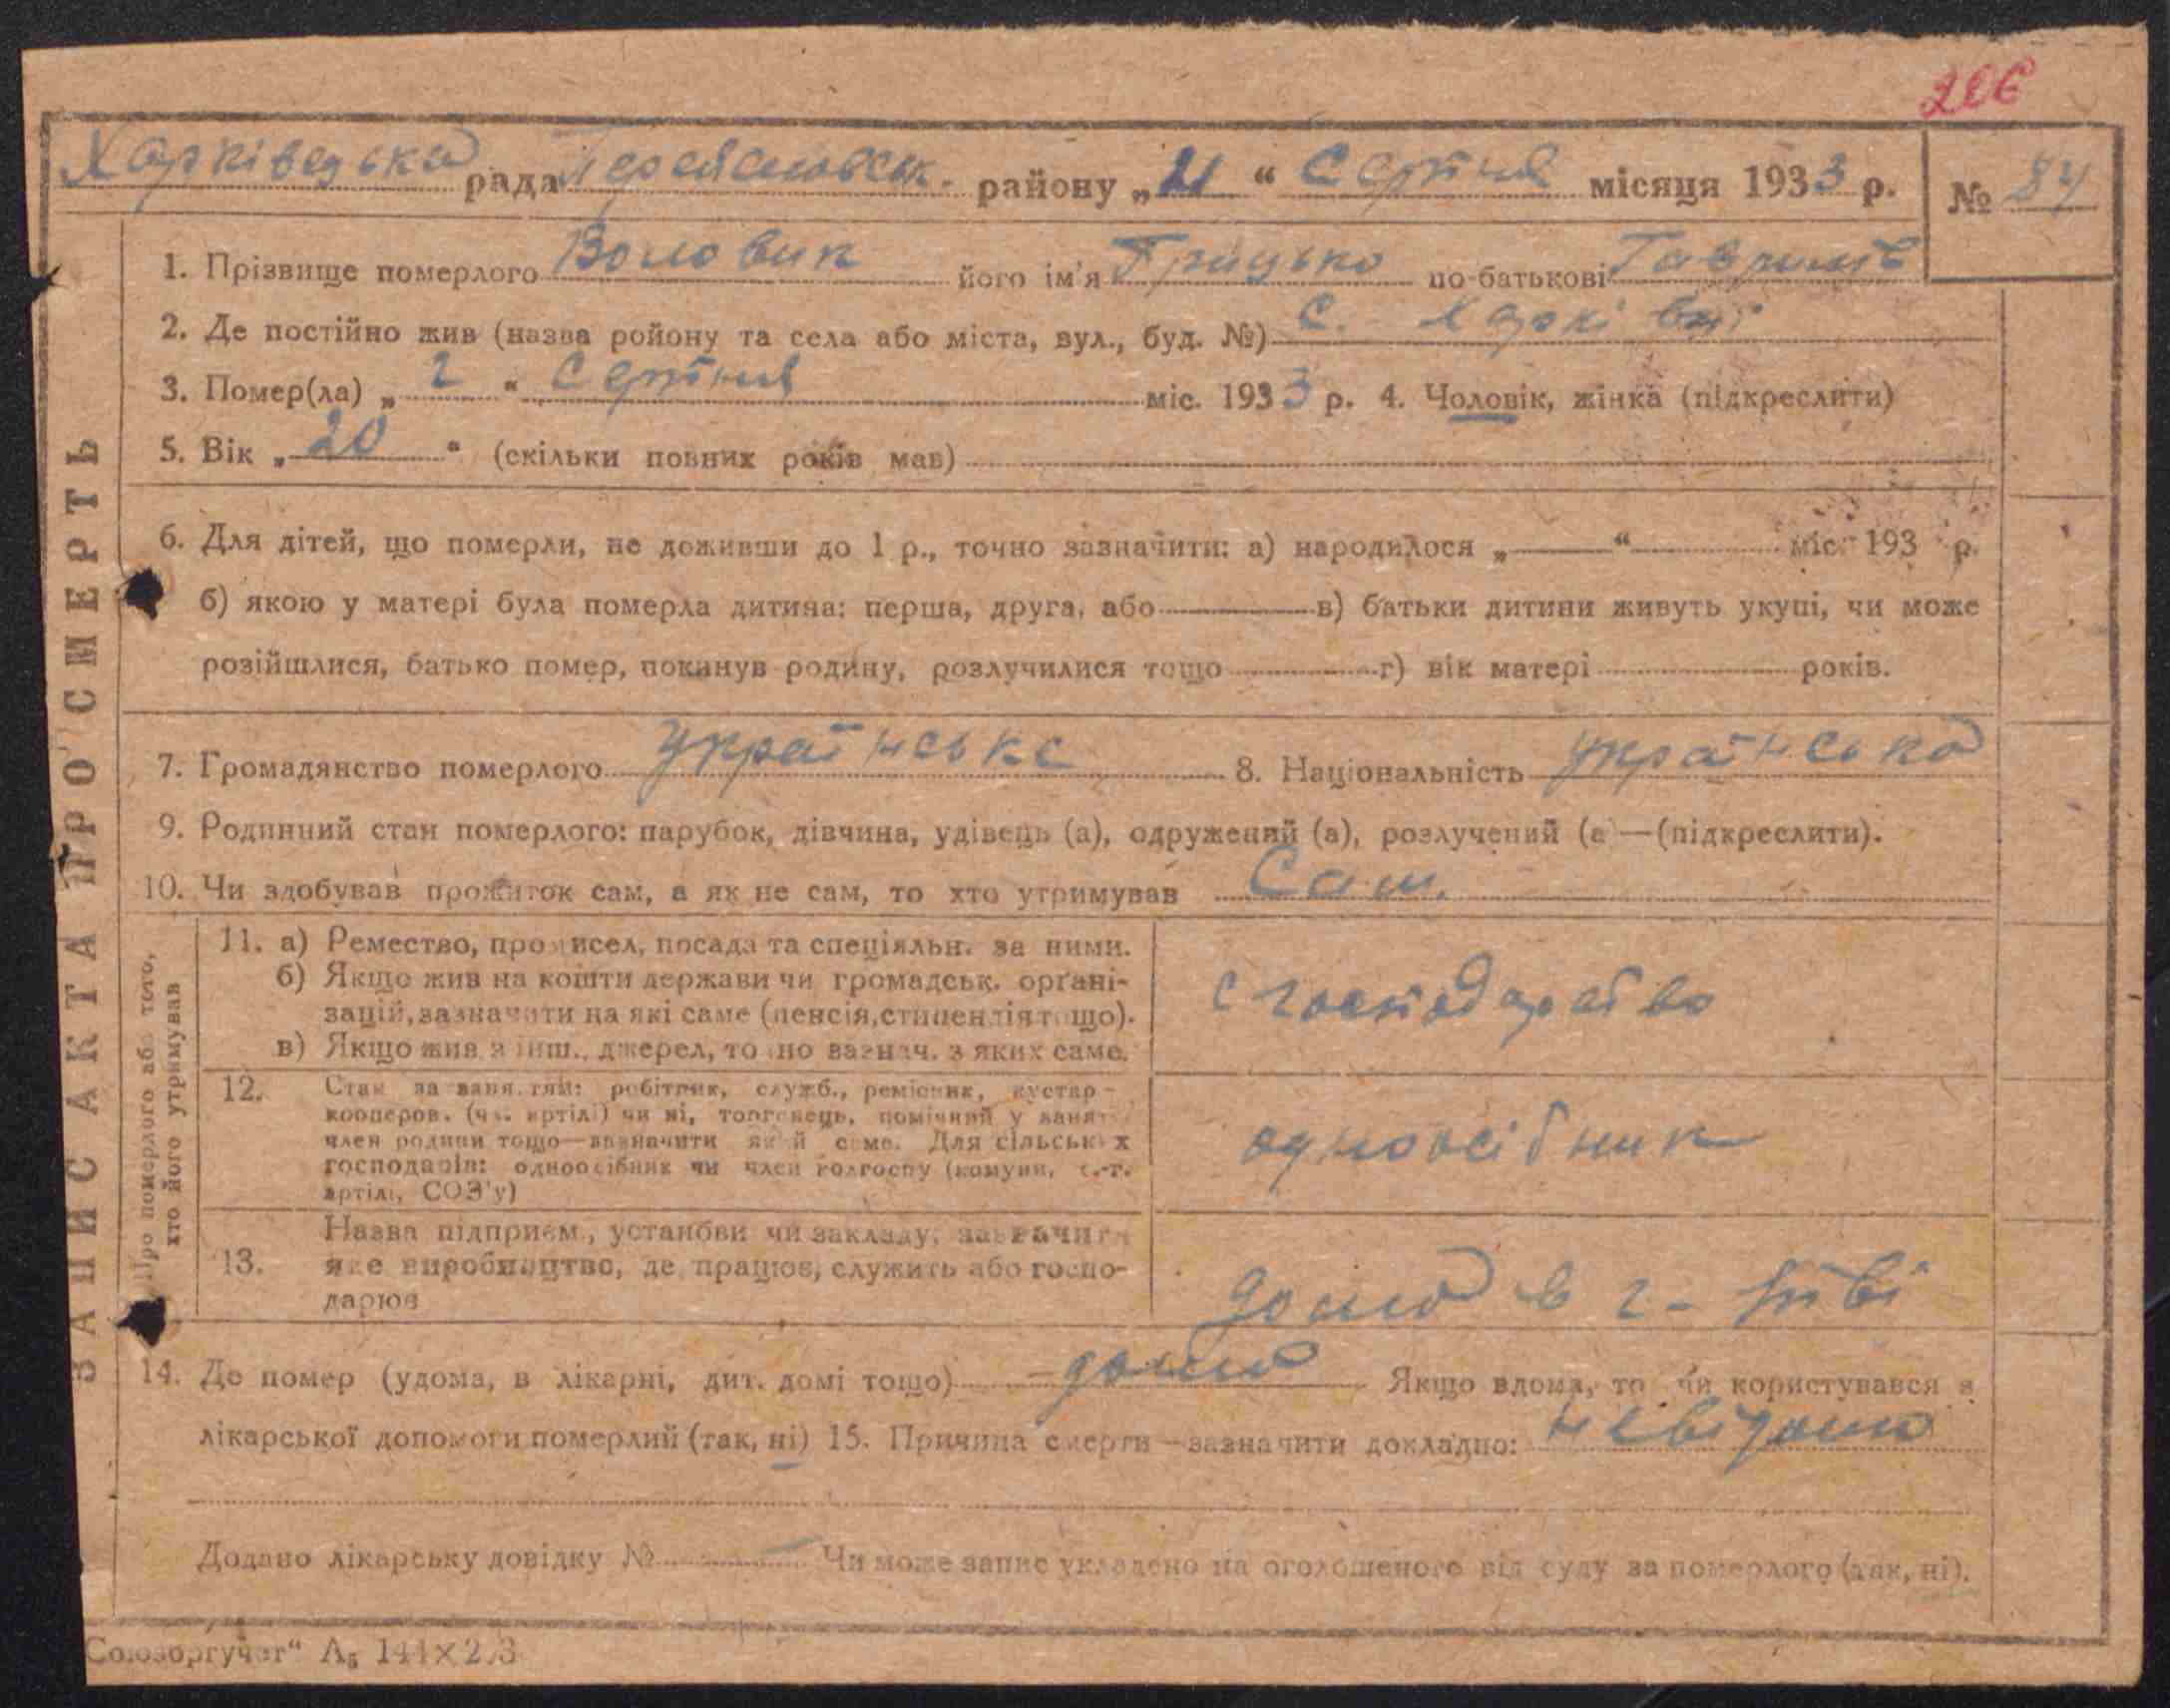 206
Харківецька рада Переяславськ. району „21“ Серпня місяця 1933 р. № 84
1. Прізвище померлого Воловик його ім'я Грицько по-батькові
2. Де постійно жив (назва ройону та села або міста, вул., буд. №) С. Харківці
3. Помер(ла) „2“ Серпня міс. 1933 р. 4. Чоловік, жінка (підкреслити)
5. Вік „20“ (скільки повних років мав)
6. Для дітей, що померли, не доживши до 1 р., точно зазначити: а) народилося „ “ міс. 193 р.
б) якою у матері була померла дитина: перша, друга, або в) батьки дитини живуть укупі, чи може
розійшлися, батько помер, покинув родину, розлучилися тощо г) вік матері років.
7. Громадянство померлого українське 8. Національність українська
9. Родинний стан померлого: парубок, дівчина, удівець (а), одружений (а), розлучений (а)—(підкреслити).
10. Чи здобував прожиток сам, а як не сам, то хто утримував Сам.
11. а) Ремество, промисел, посада та спеціяльн. за ними.
б) Якщо жив на кошти держави чи громадськ. орґані-
зацій, зазначити на які саме (пенсія, стипендія тощо).
в) Якщо жив з інш. джерел, точно зазнач. з яких саме.
с господарство
12. Стан за заняттям: робітник, служб., ремісник, кустар-
кооперов. (чл. артілі) чи ні, торговець, помічний у занятті
член родини тощо—зазначити який саме. Для сільських
господарів: одноосібник чи член колгоспу (комуни, с.-г.
артілі, СОЗ'у)
одноосібник
13. Назва підприєм., установи чи закладу; зазначити
яке виробництво, де працює, служить або госпо-
дарює
дома в г-стві
14. Де помер (удома, в лікарні, дит. домі тощо) дома Якщо вдома, то чи користувався з
лікарської допомоги померлий (так, ні) 15. Причина смерти—зазначити докладно: невідомо
Додано лікарську довідку № — Чи може запис укладено на оголошеного від суду за померлого (так, ні).
ЗАПИС АКТА ПРО СМЕРТЬ
Про померлого або того,
хто його утримував
Союзоргучет“ А₅ 144×2.3